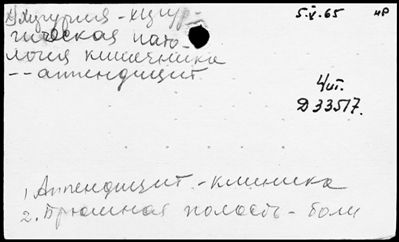 Хирургия - хирур-
гическая пато-
логия кишечника
-- аппендицит
5.V.65
нр
Чит.
D33517.
1. Аппендицит - клиника
2. Брюшная полость - боли